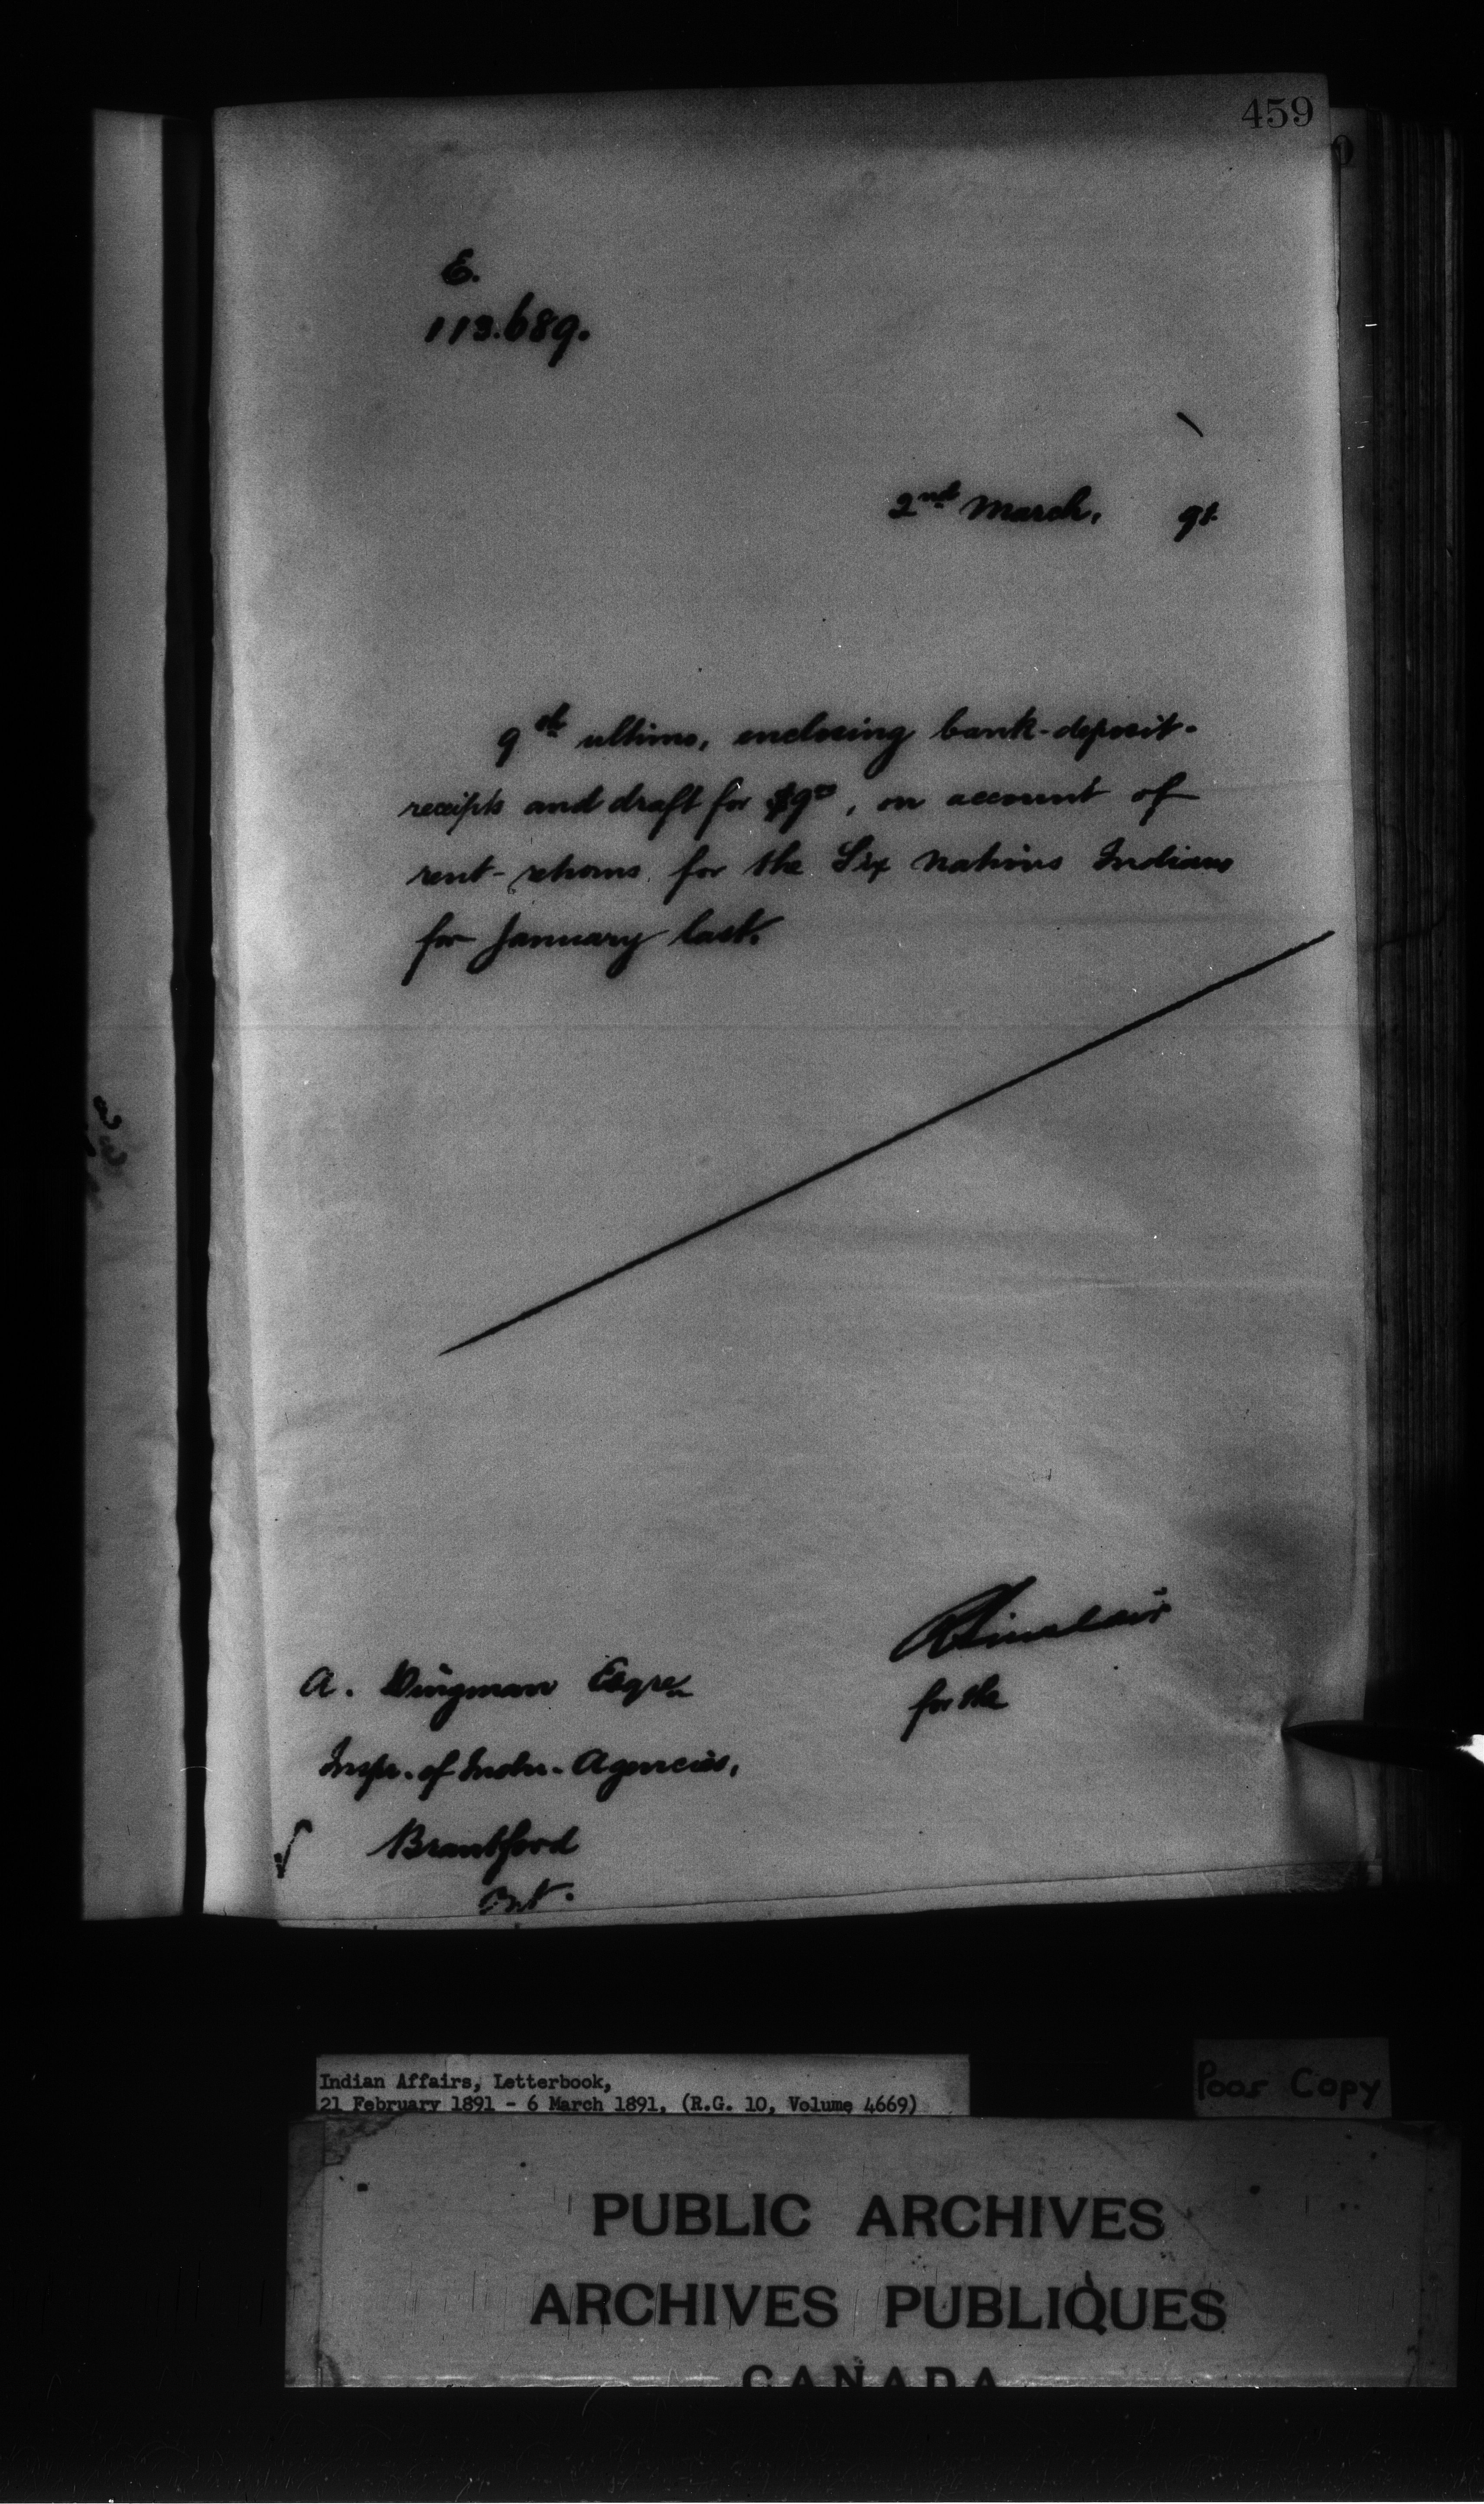 459
E.
113.689.
2nd March, 91.
9th ultimo, enclosing bank-deposit-
receipts and draft for $9 00, on account of
rent-returns for the Six Nations Indians
for January last.
RSinclair
for the
A. Dingman Esqre
Inspr. of Indn. Agencies,
Brantford
Ont.
Indian Affairs, Letterbook,
21 February 1891 - 6 March 1891, (R.G. 10, Volume 4669)
Poor Copy
PUBLIC ARCHIVES
ARCHIVES PUBLIQUES
CANADA